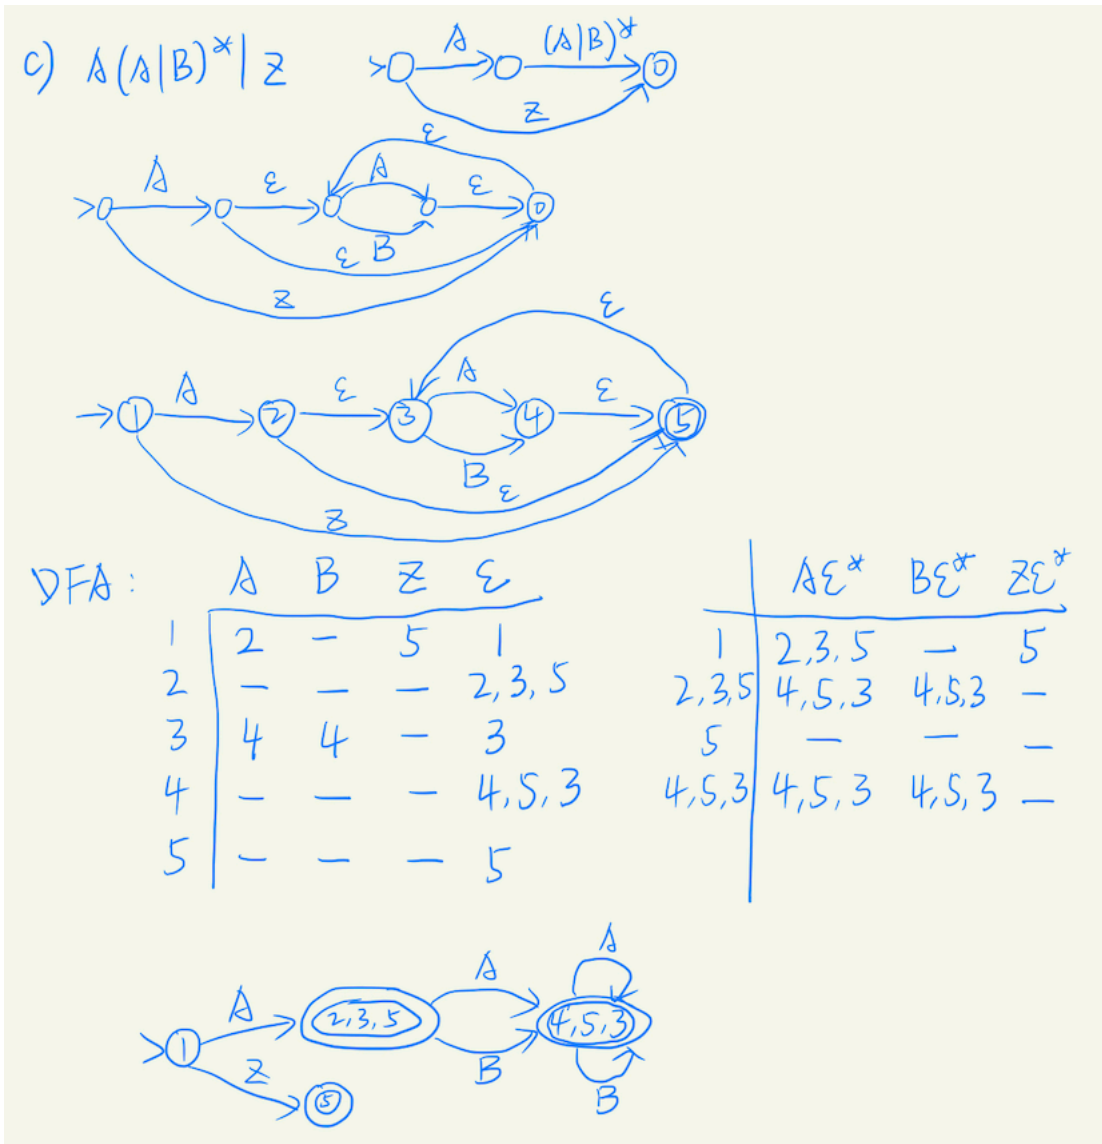 c) A(A|B)*|Z
A (A|B)*
Z
ε
A ε A ε
B
ε
Z
ε
A ε A ε
1 2 3 4 5
B
ε
Z
DFA: A B Z ε
1 2 – 5 1
2 – – – 2,3,5
3 4 4 – 3
4 – – – 4,5,3
5 – – – 5
Aε* Bε* Zε*
1 2,3,5 – 5
2,3,5 4,5,3 4,5,3 –
5 – – –
4,5,3 4,5,3 4,5,3 –
A
A A
1 2,3,5 4,5,3
Z B
5 B